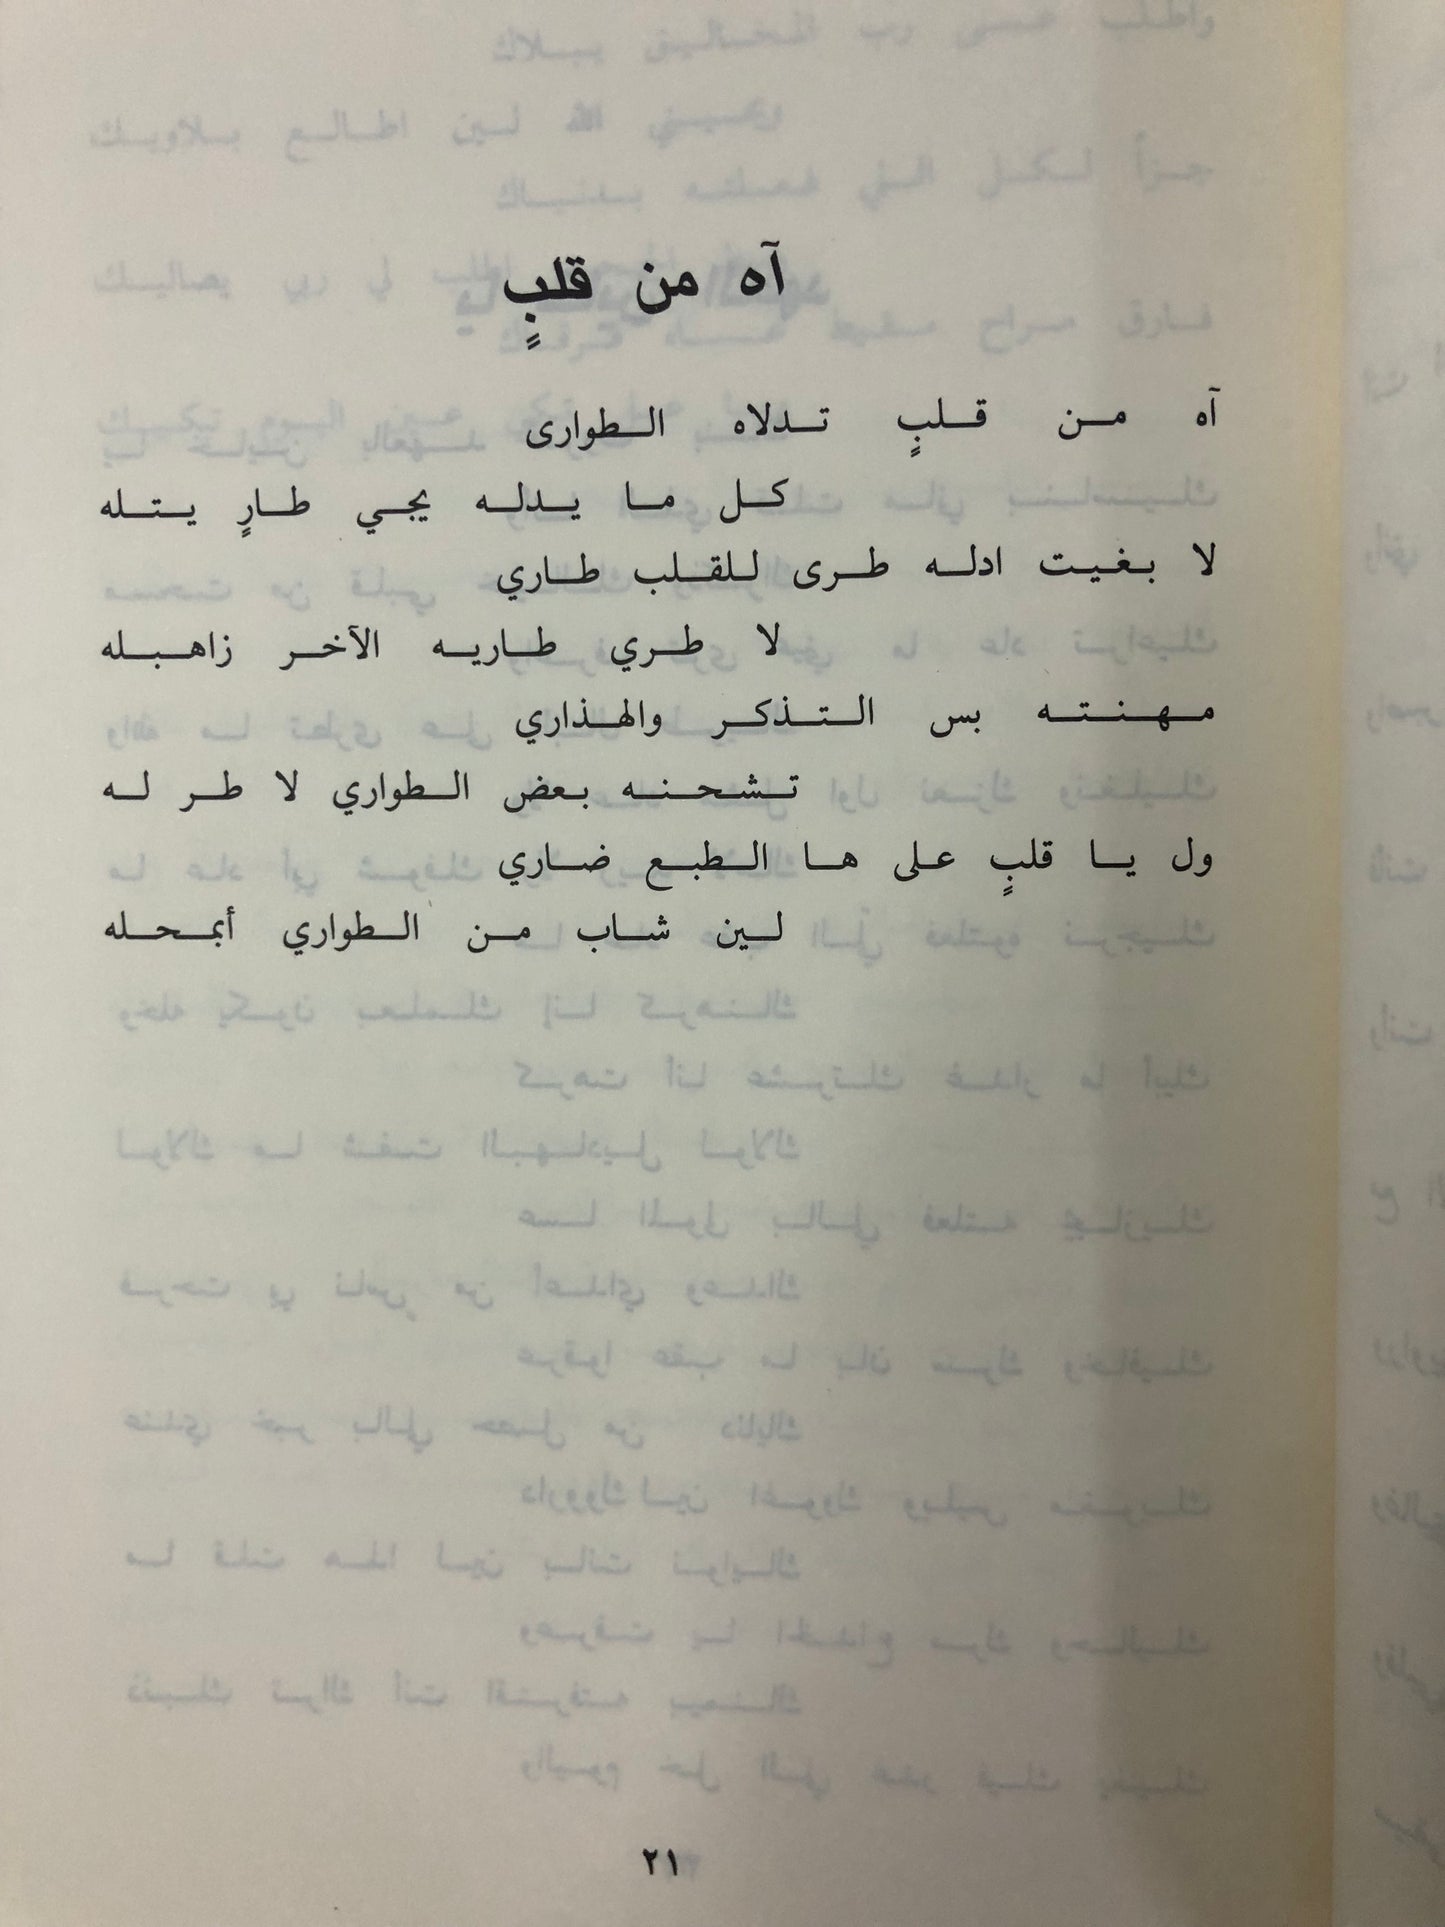 آه من قلبٍ
آه من قلبٍ تدلاه الطوارى
كل ما يدله يجي طارٍ يتله
لا بغيت ادله طرى للقلب طاري
لا طري طاريه الآخر زاهبله
مهنته بس التذكر والهذاري
تشحنه بعض الطواري لا طر له
ول يا قلبٍ على ها الطبع ضاري
لين شاب من الطواري أبمحله
٢١